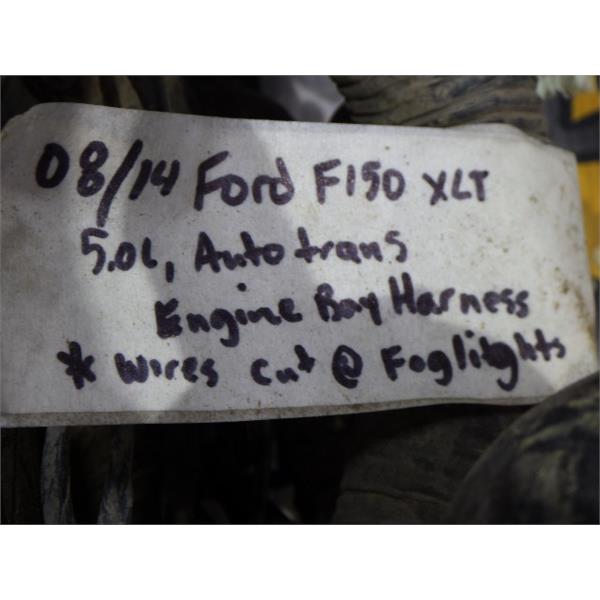 08/14 Ford F150 XLT
5.0L, Auto trans
Engine Bay Harness
* Wires cut @ Foglitghts